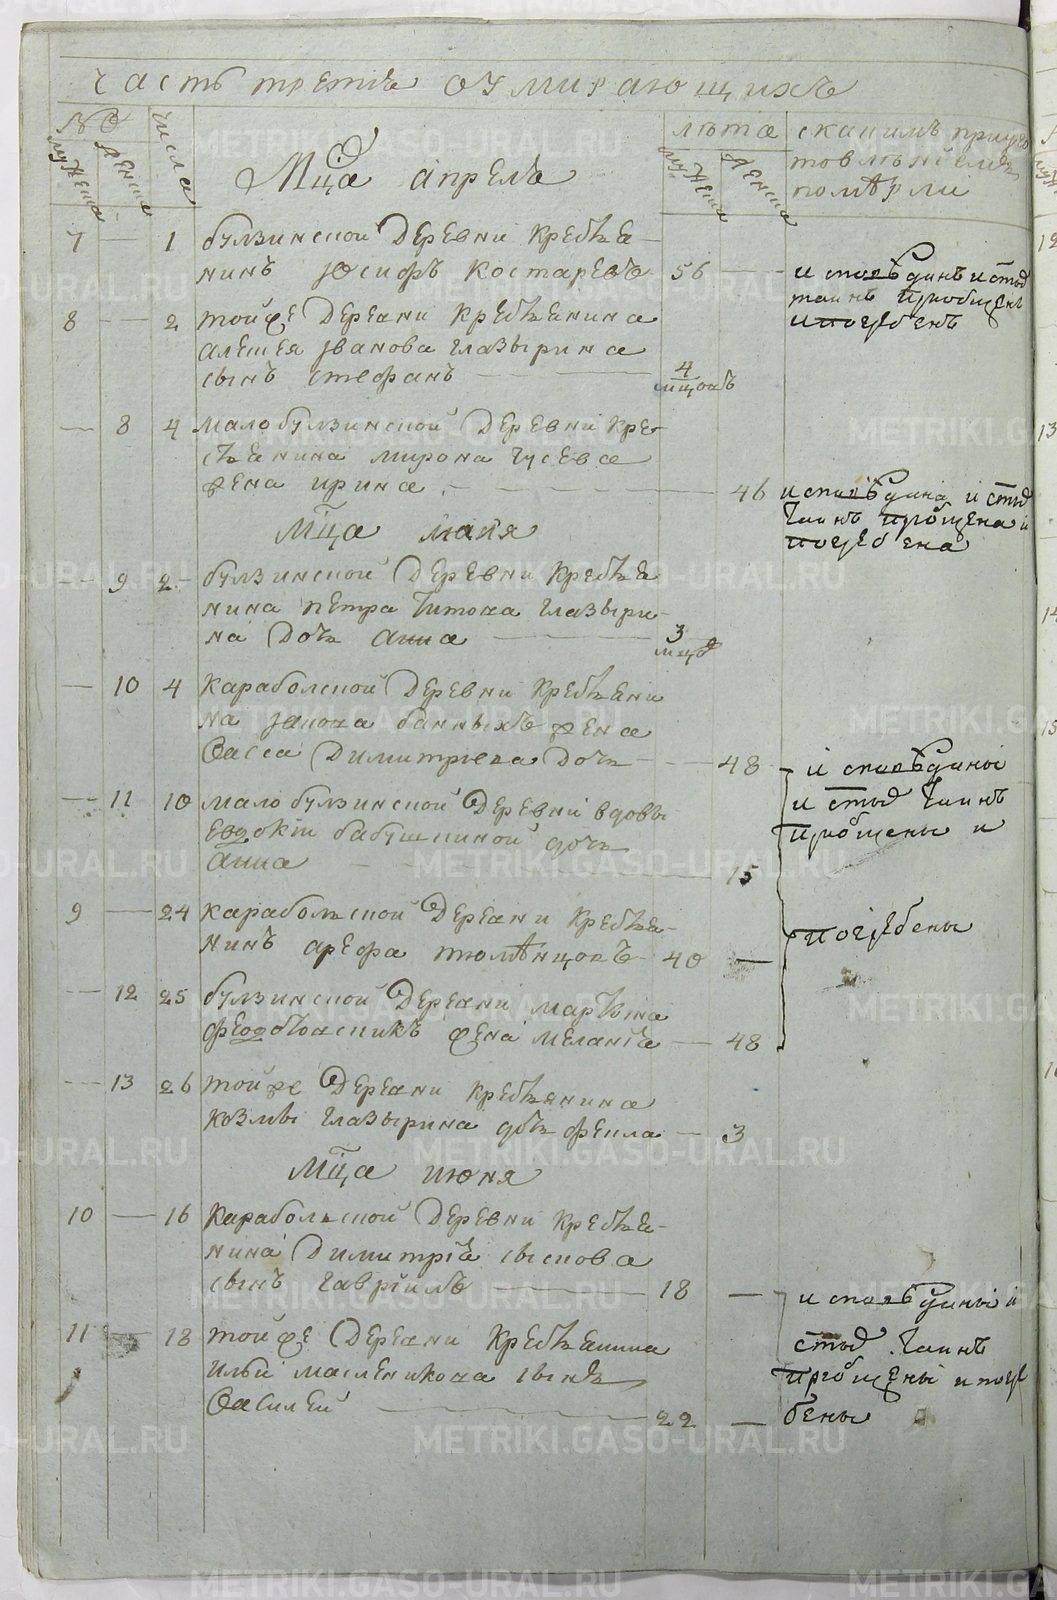 часть третiя оумирающихъ
№
мужеска
женска
числа
Мца апреля
лѣта
мужеска
женска
скакимъ приуго
товленiемъ
померли
7 — 1 булзинской деревни кресьтья-
нинъ Юсифъ Костаревъ 56 —
исповѣданъ и стыхъ
таинъ приобщенъ
и погребенъ
8 — 2 тойже деревни крестьянина
алексея Iванова глазырина
сынъ стефанъ — 4
мцовъ
— 8 4 малобулзинской деревни кре-
стьянина мирона гусева
жена ирина — 46
исповѣдана и стых
таинъ приобщена и
погребена
Мца маiя
— 9 2 булзинской деревни крестья
нина петра титова глазыри-
на дочь анна — 3
мцов
— 10 4 караболской деревни крестьяни
на якова банныхъ жена
Васса димитрiева дочь — 48
исповѣданы
и стых таинъ
приобщены и
погребены
— 11 10 малобулзинской деревни вдовы
Евдокiи бабушкиной дочь
анна — 15
9 — 24 караболской деревни крестья-
нинъ арефа тюмѣнцовъ 40 —
— 12 25 булзинской деревни
жена меланiя — 48
— 13 26 тойже деревни крестьянина
козмы глазырина дочь фекла — 3
Мца июня
10 — 16 караболской деревни крестья-
нина димитрiя сыскова
сынъ гаврiилъ — 18 —
исповѣданы и
стых таинъ
приобщены и погре
бены
11 — 18 тойже деревни крестьянина
ильи масленикова сынъ
Василей — 22 —
METRIKI.GASO-URAL.RU